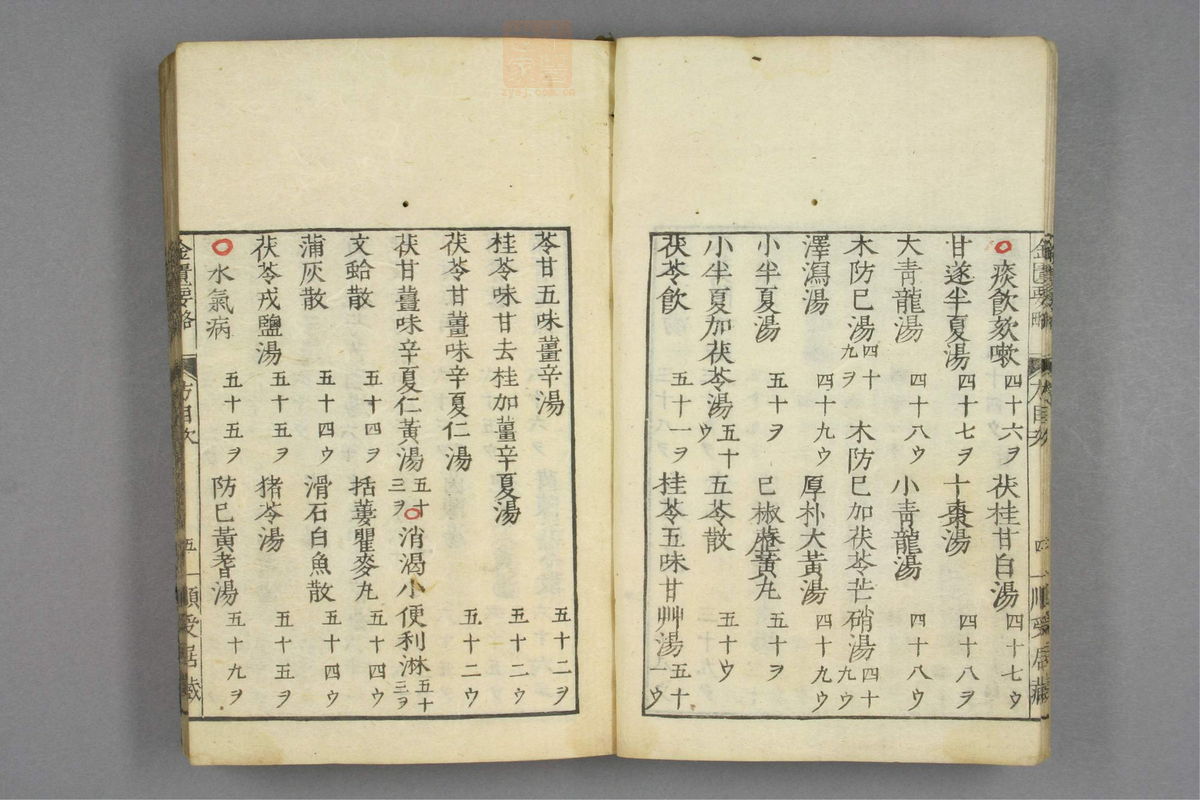 金匱要略
方目次
四
順受居藏
痰飲欬嗽 四十六ヲ 茯桂甘白湯 四十七ウ
甘遂半夏湯 四十七ヲ 十棗湯 四十八ヲ
大青龍湯 四十八ウ 小青龍湯 四十八ウ
木防已湯 四十九ヲ 木防已加茯苓芒硝湯 四十九ウ
澤瀉湯 四十九ウ 厚朴大黃湯 四十九ウ
小半夏湯 五十ヲ 已椒藶黃丸 五十ヲ
小半夏加茯苓湯 五十ウ 五苓散 五十ウ
茯苓飲 五十一ヲ 桂苓五味甘艸湯 五十一ウ
苓甘五味薑辛湯 五十二ヲ
桂苓味甘去桂加薑辛夏湯 五十二ウ
茯苓甘薑味辛夏仁湯 五十二ウ
茯甘薑味辛夏仁黃湯 五十三ヲ 消渴小便利淋 五十三ヲ
文蛤散 五十四ヲ 括蔞瞿麥丸 五十四ウ
蒲灰散 五十四ウ 滑石白魚散 五十四ウ
茯苓戎鹽湯 五十五ヲ 猪苓湯 五十五ヲ
水氣病 五十五ヲ 防已黃耆湯 五十九ヲ
金匱要略
方目次
五
順受居藏
zysj.com.cn